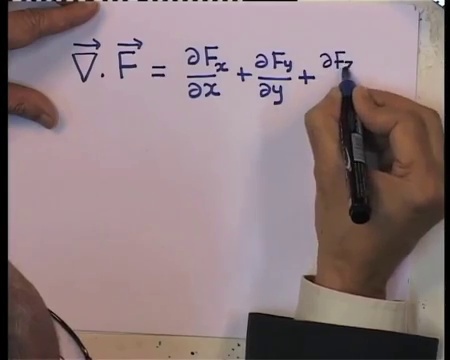 ∇⃗ . F⃗ = ∂Fx/∂x + ∂Fy/∂y + ∂Fz